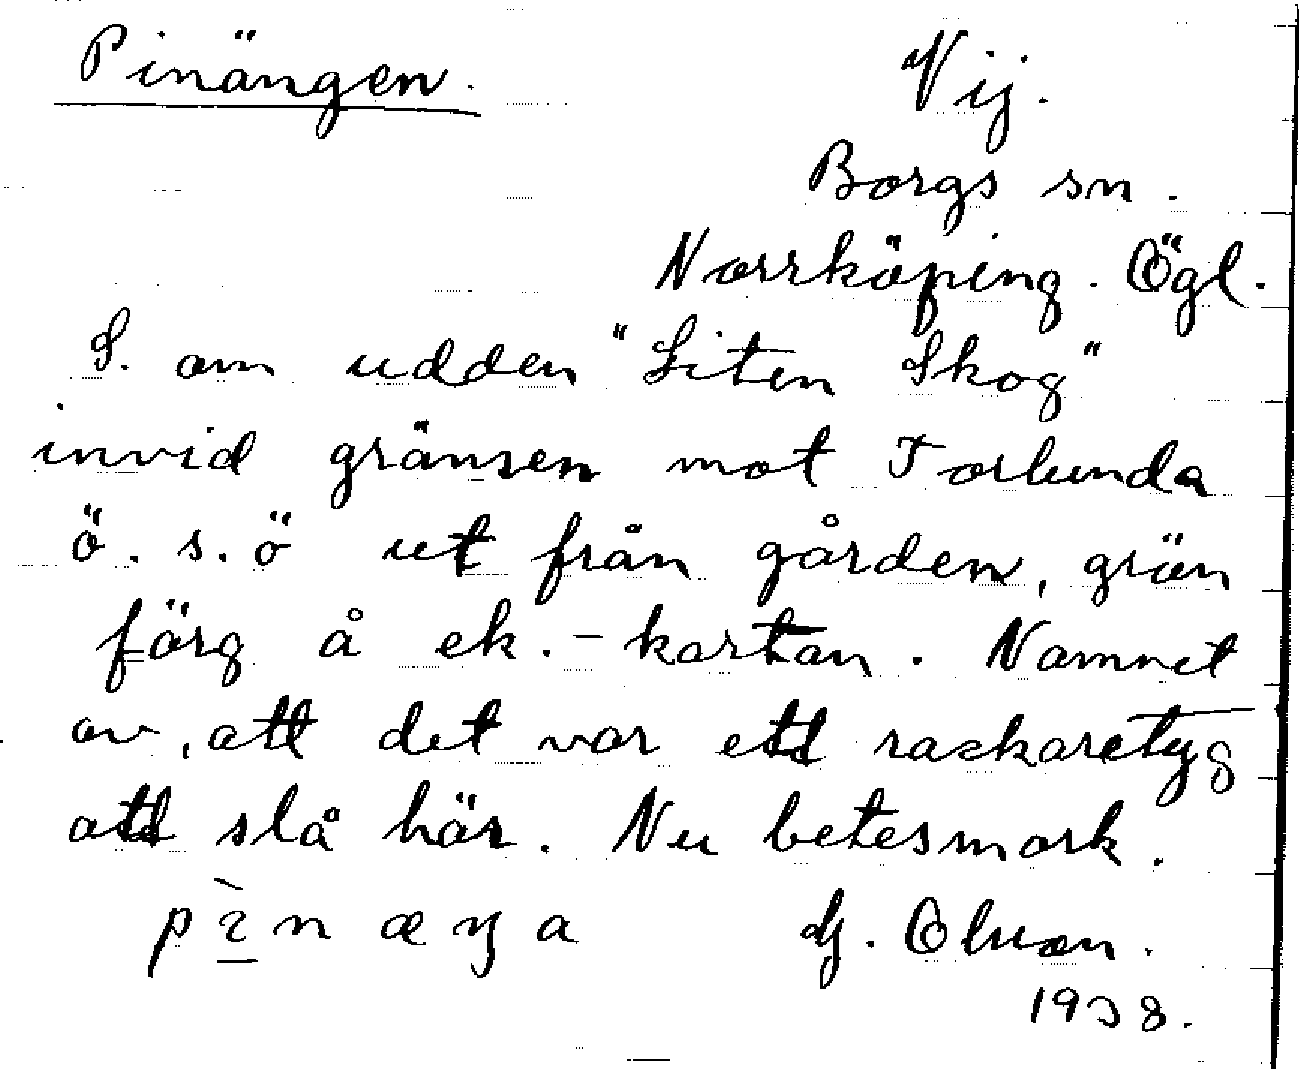 Pinängen.
Vij.
Borgs sn.
Norrköping. Ögl.
S. om udden "Liten Skog"
invid gränsen mot Torlunda
ö. s. ö ut från gården, grön
färg å ek.-kartan. Namnet
av, att det var ett rackaretyg
att slå här. Nu betesmark.
G. Olson.
1938.